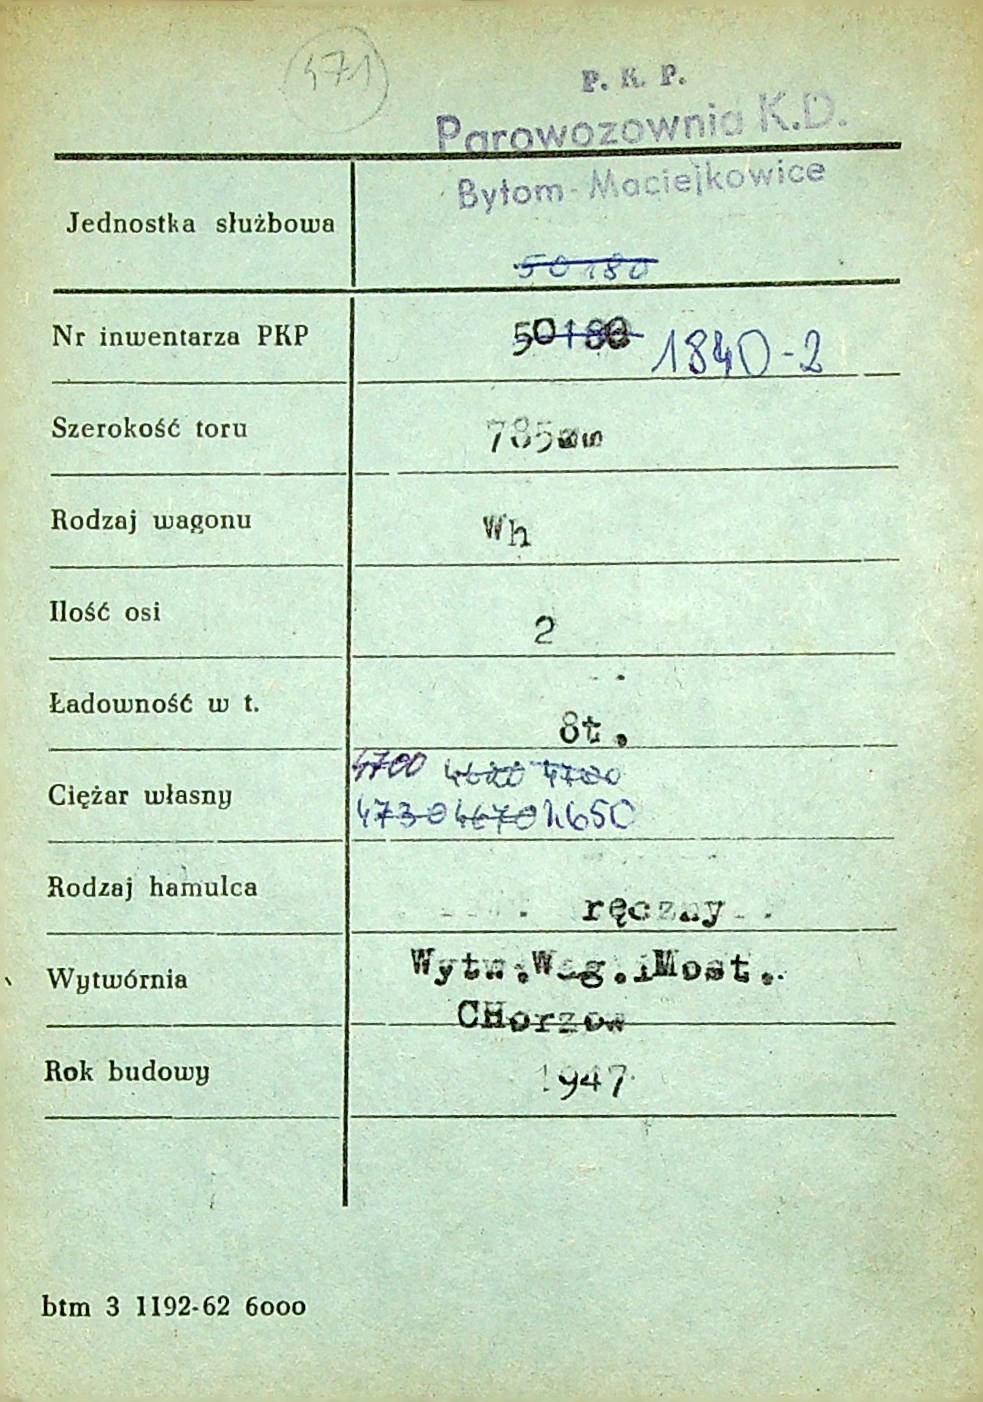 471
P. K. P.
Parowozownia K.D.
Bytom-Maciejkowice
Jednostka służbowa
50180
Nr inwentarza PKP 50180 1840-2
Szerokość toru 785mm
Rodzaj wagonu Wh
Ilość osi 2
Ładowność w t. 8t.
4700 4700
Ciężar własny
4730 4670 4650
Rodzaj hamulca ręczny
Wytwórnia Wytw.Wag.iMost.
CHorzow
Rok budowy 1947
btm 3 1192-62 6000